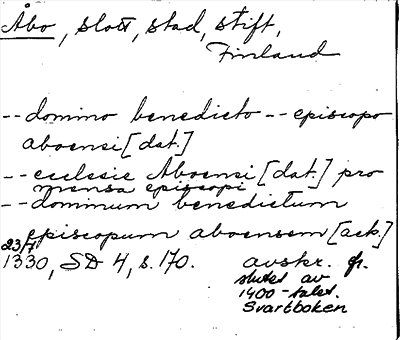 Åbo, slott, stad, stift,
Finland
-- domino benedicto -- episcopo
aboensi [dat.]
-- ecclesie Aboensi [dat.] pro
mensa episcopi
-- dominum benedictum
episcopum aboensem [ack.]
23/7
1330, SD 4, s. 170. avskr. fr.
slutet av
1400-talet.
Svartboken